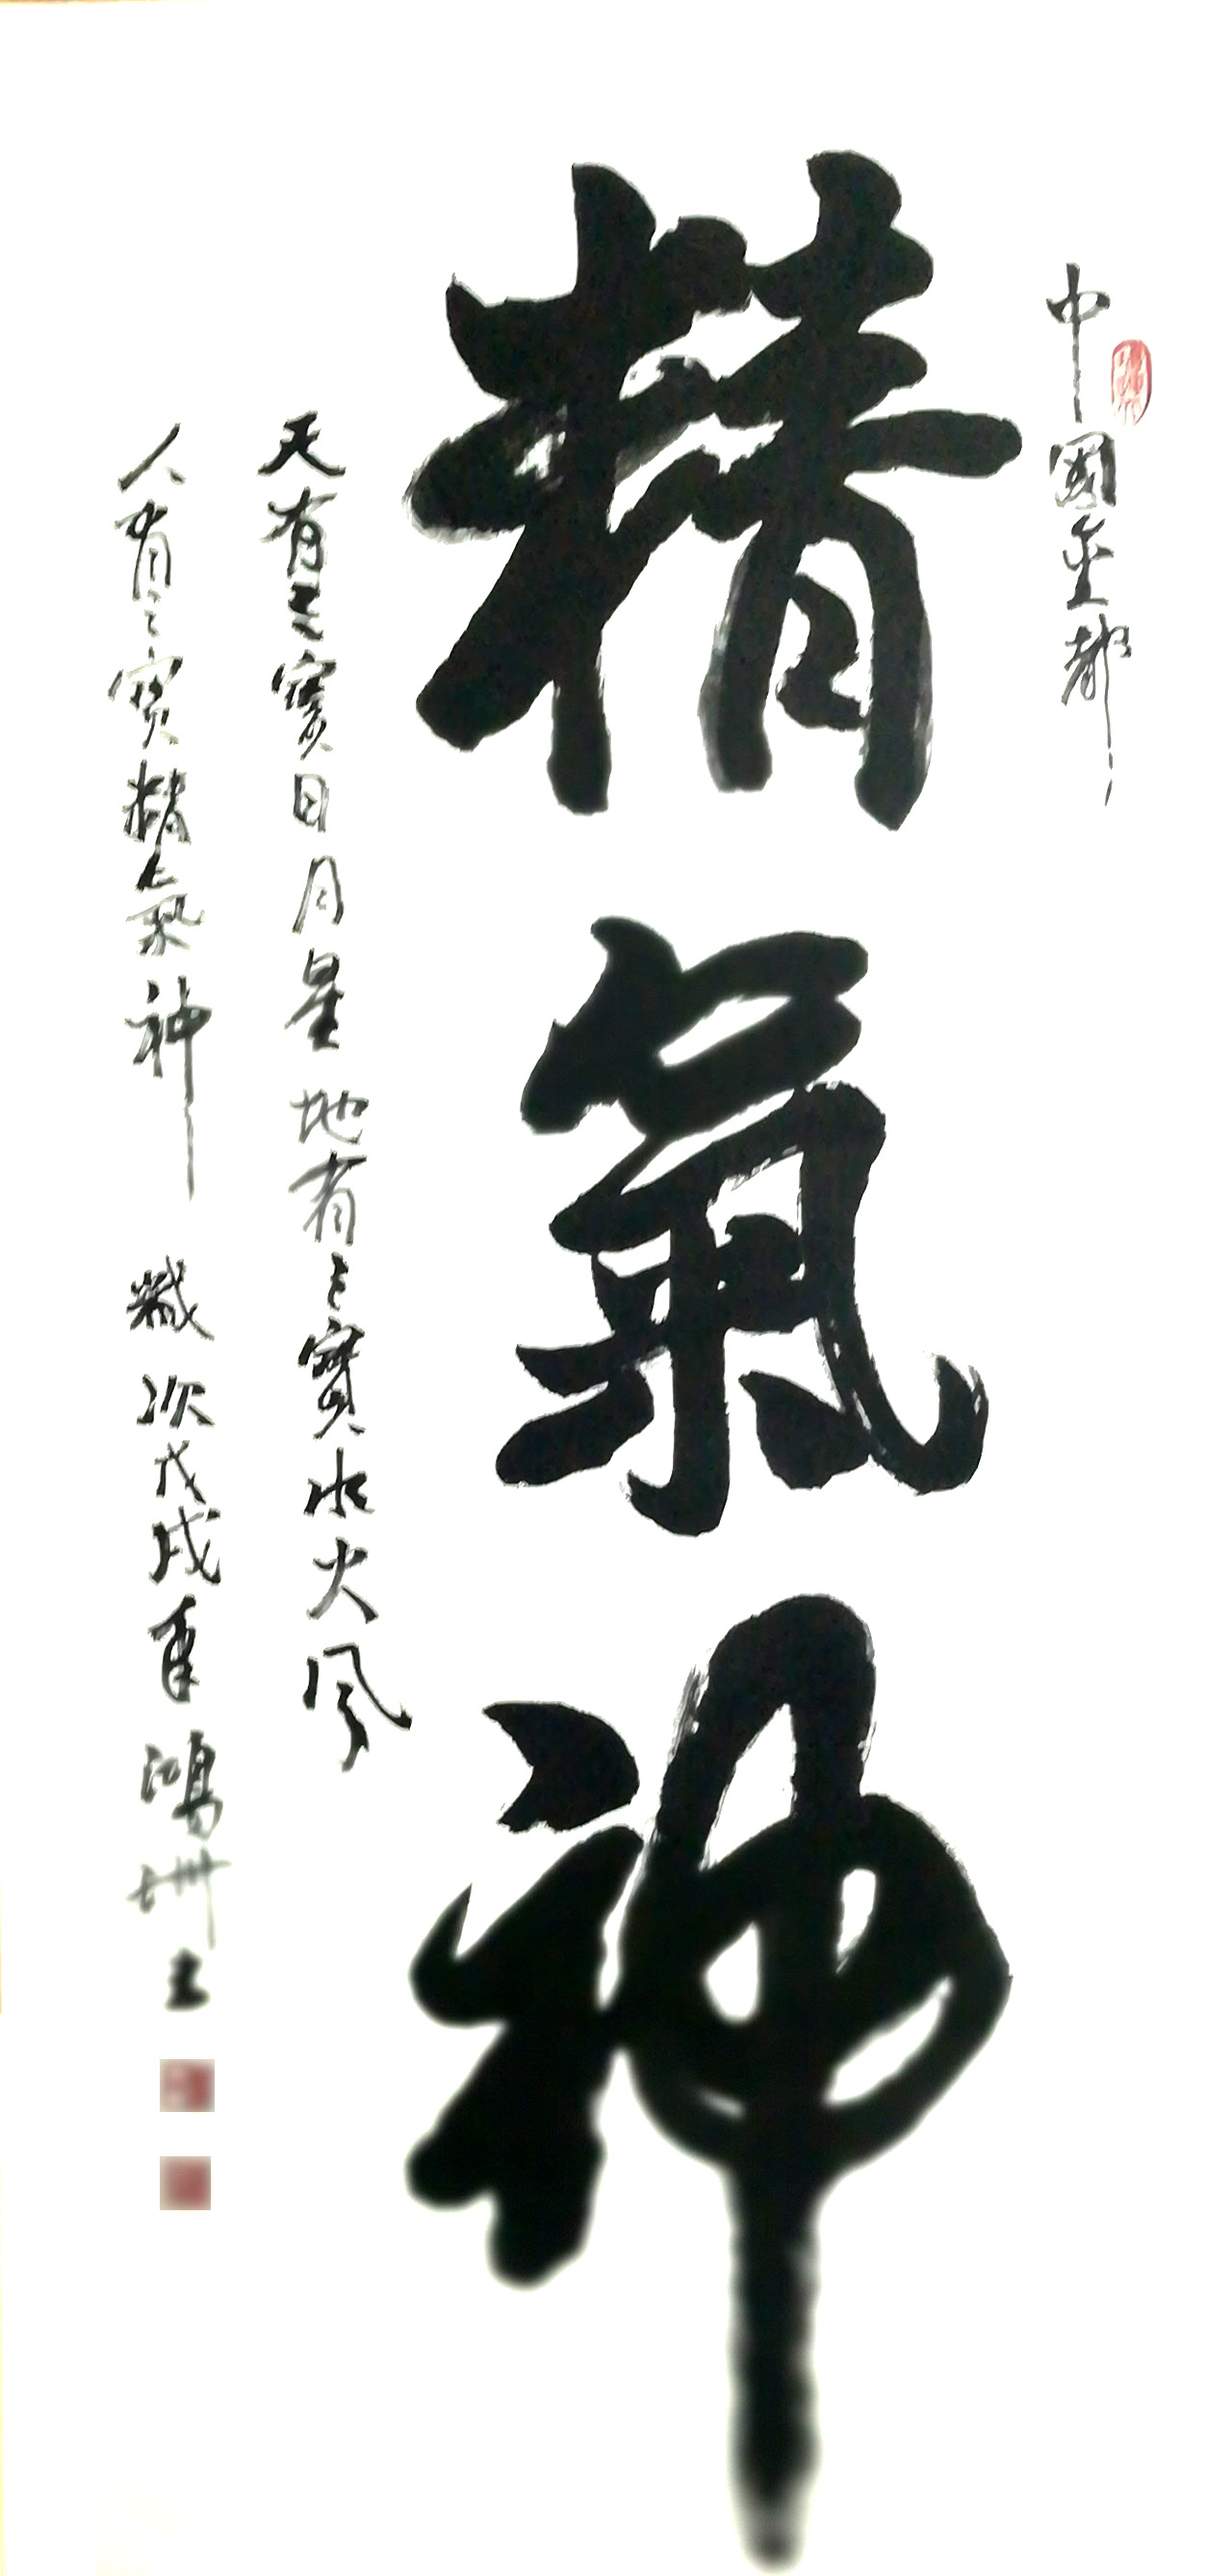 中國金都
精氣神
天有三寶日月星地有三寶水火風
人有三寶精氣神 歲次戊戌年鴻洲土